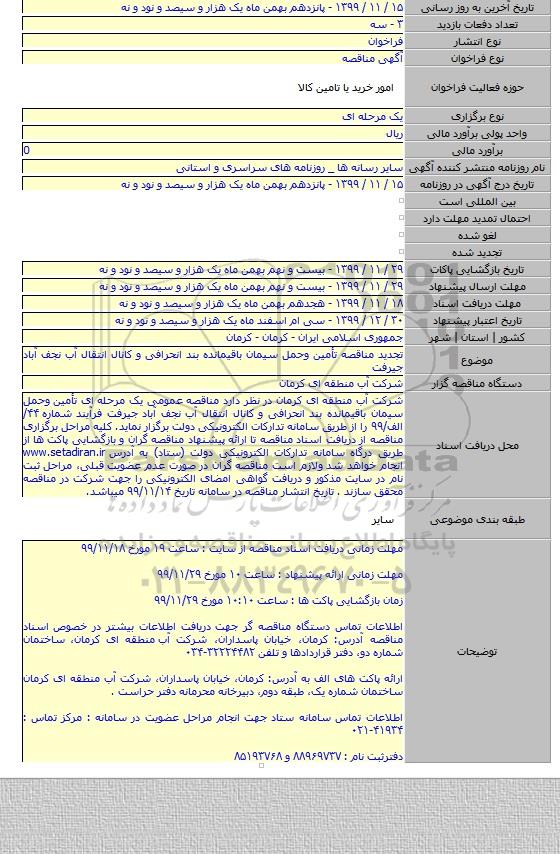 تاریخ آخرین به روز رسانی ۱۵ / ۱۱ / ۱۳۹۹ - پانزدهم بهمن ماه یک هزار و سیصد و نود و نه
تعداد دفعات بازدید ۳ - سه
نوع انتشار فراخوان
نوع فراخوان آگهی مناقصه
حوزه فعالیت فراخوان امور خرید یا تامین کالا
نوع برگزاری یک مرحله ای
واحد پولی برآورد مالی ریال
برآورد مالی 0
نام روزنامه منتشر کننده آگهی سایر رسانه ها _ روزنامه های سراسری و استانی
تاریخ درج آگهی در روزنامه ۱۵ / ۱۱ / ۱۳۹۹ - پانزدهم بهمن ماه یک هزار و سیصد و نود و نه
بین المللی است
احتمال تمدید مهلت دارد
لغو شده
تجدید شده
تاریخ بازگشایی پاکات ۲۹ / ۱۱ / ۱۳۹۹ - بیست و نهم بهمن ماه یک هزار و سیصد و نود و نه
مهلت ارسال پیشنهاد ۲۹ / ۱۱ / ۱۳۹۹ - بیست و نهم بهمن ماه یک هزار و سیصد و نود و نه
مهلت دریافت اسناد ۱۸ / ۱۱ / ۱۳۹۹ - هجدهم بهمن ماه یک هزار و سیصد و نود و نه
تاریخ اعتبار پیشنهاد ۳۰ / ۱۲ / ۱۳۹۹ - سی ام اسفند ماه یک هزار و سیصد و نود و نه
کشور | استان | شهر جمهوری اسلامی ایران - کرمان - کرمان
موضوع تجدید مناقصه تأمین وحمل سیمان باقیمانده بند انحرافی و کانال انتقال آب نجف آباد
جیرفت
دستگاه مناقصه گزار شرکت آب منطقه ای کرمان
محل دریافت اسناد شرکت آب منطقه ای کرمان در نظر دارد مناقصه عمومی یک مرحله ای تأمین وحمل
سیمان باقیمانده بند انحرافی و کانال انتقال آب نجف آباد جیرفت فرآیند شماره ۴۴/
الف/۹۹ را از طریق سامانه تدارکات الکترونیکی دولت برگزار نماید. کلیه مراحل برگزاری
مناقصه از دریافت اسناد مناقصه تا ارائه پیشنهاد مناقصه گران و بازگشایی پاکت ها از
طریق درگاه سامانه تدارکات الکترونیکی دولت (ستاد) به آدرس www.setadiran.ir
انجام خواهد شد ولازم است مناقصه گران در صورت عدم عضویت قبلی، مراحل ثبت
نام در سایت مذکور و دریافت گواهی امضای الکترونیکی را جهت شرکت در مناقصه
محقق سازند . تاریخ انتشار مناقصه در سامانه تاریخ ۹۹/۱۱/۱۴ میباشد.
طبقه بندی موضوعی سایر
توضیحات
مهلت زمانی دریافت اسناد مناقصه از سایت : ساعت ۱۹ مورخ ۹۹/۱۱/۱۸
مهلت زمانی ارائه پیشنهاد : ساعت ۱۰ مورخ ۹۹/۱۱/۲۹
زمان بازگشایی پاکت ها : ساعت ۱۰:۱۰ مورخ ۹۹/۱۱/۲۹
اطلاعات تماس دستگاه مناقصه گر جهت دریافت اطلاعات بیشتر در خصوص اسناد
مناقصه آدرس: کرمان، خیابان پاسداران، شرکت آب منطقه ای کرمان، ساختمان
شماره دو، دفتر قراردادها و تلفن ۳۲۲۲۴۴۸۲-۰۳۴
ارائه پاکت های الف به آدرس: کرمان، خیابان پاسداران، شرکت آب منطقه ای کرمان
ساختمان شماره یک، طبقه دوم، دبیرخانه محرمانه دفتر حراست .
اطلاعات تماس سامانه ستاد جهت انجام مراحل عضویت در سامانه : مرکز تماس :
۰۲۱-۴۱۹۳۴
دفترثبت نام : ۸۸۹۶۹۷۳۷ و ۸۵۱۹۳۷۶۸
مرکز فرآوری اطلاعات پارس نماد داده ها
پایگاه اطلاع رسانی مناقصه و مزایده
۰۲۱-۸۸۳۴۹۶۷۰-۵